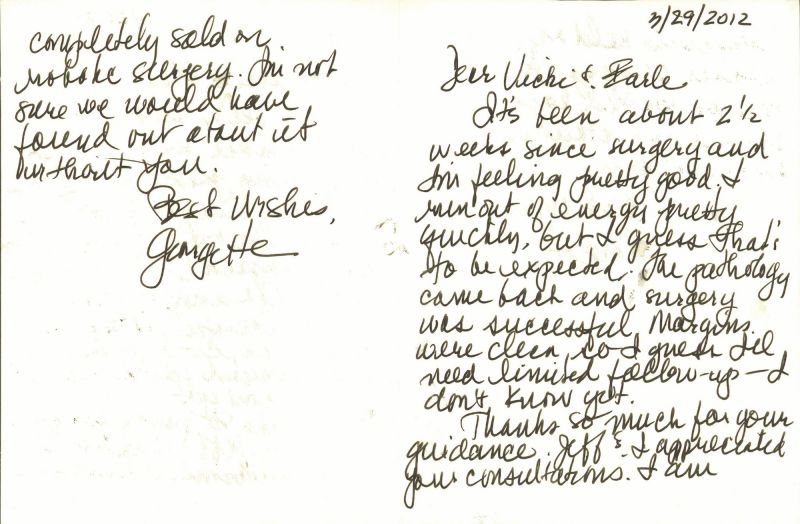 3/29/2012
Dear Vicki & Earle
It's been about 2 1/2
weeks since surgery and
I'm feeling pretty good. I
run out of energy pretty
quickly, but I guess that's
to be expected. The pathology
came back and surgery
was successful. Margins
were clean, so I guess I'll
need limited follow-up — I
don't know yet.
Thanks so much for your
guidance. Jeff & I appreciated
your consultations. I am
completely sold on
robotic surgery. I'm not
sure we would have
found out about it
without you.
Best Wishes,
Georgette